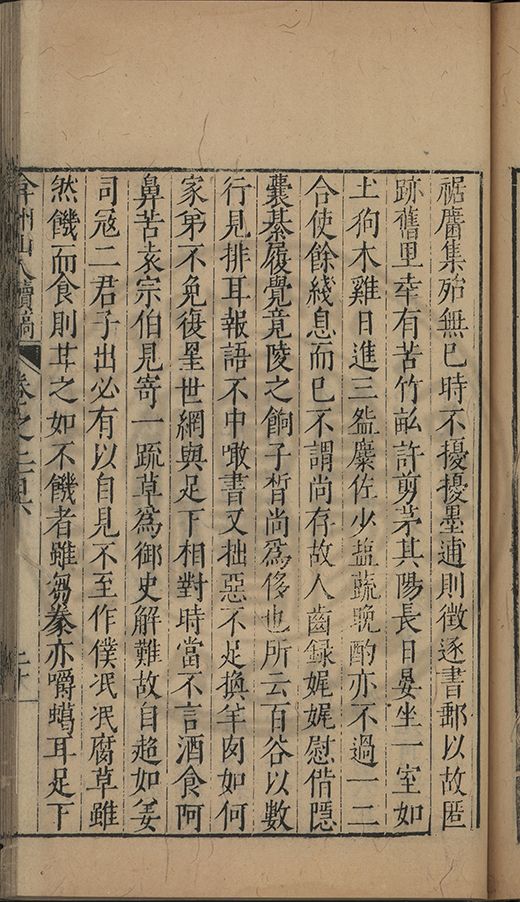 裾麕集殆無已時不擾擾墨逋則徵逐書郵以故匿
跡舊里幸有苦竹畝許剪茅其陽長日晏坐一室如
土狗木雞日進三甌麋佐少鹽蔬晚酌亦不過一二
合使餘綫息而已不謂尚存故人齒録娓娓慰借隱
囊綦履覺竟陵之餉子皙尚為侈也所云百谷以數
行見排耳報語不中噉書又拙惡不足換羊肉如何
家弟不免復罣世網與足下相對時當不言酒食阿
鼻苦袁宗伯見寄一疏草為御史解難故自超如姜
司寇二君子出必有以自見不至作僕泯泯腐草雖
然饑而食則甘之如不饑者雖芻豢亦嚼蠟耳足下
弇州山人續稿 卷之二百六 二十一